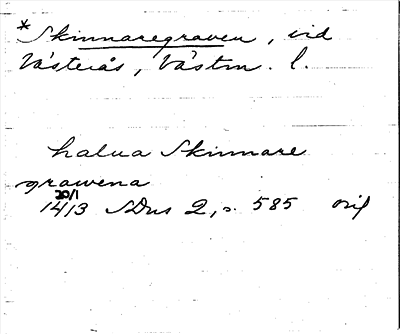 * Skinnaregraven, vid
Västerås, Västm. l.
halua Skinnare
grawena
20/1
1413 SDns 2, s. 585 orig